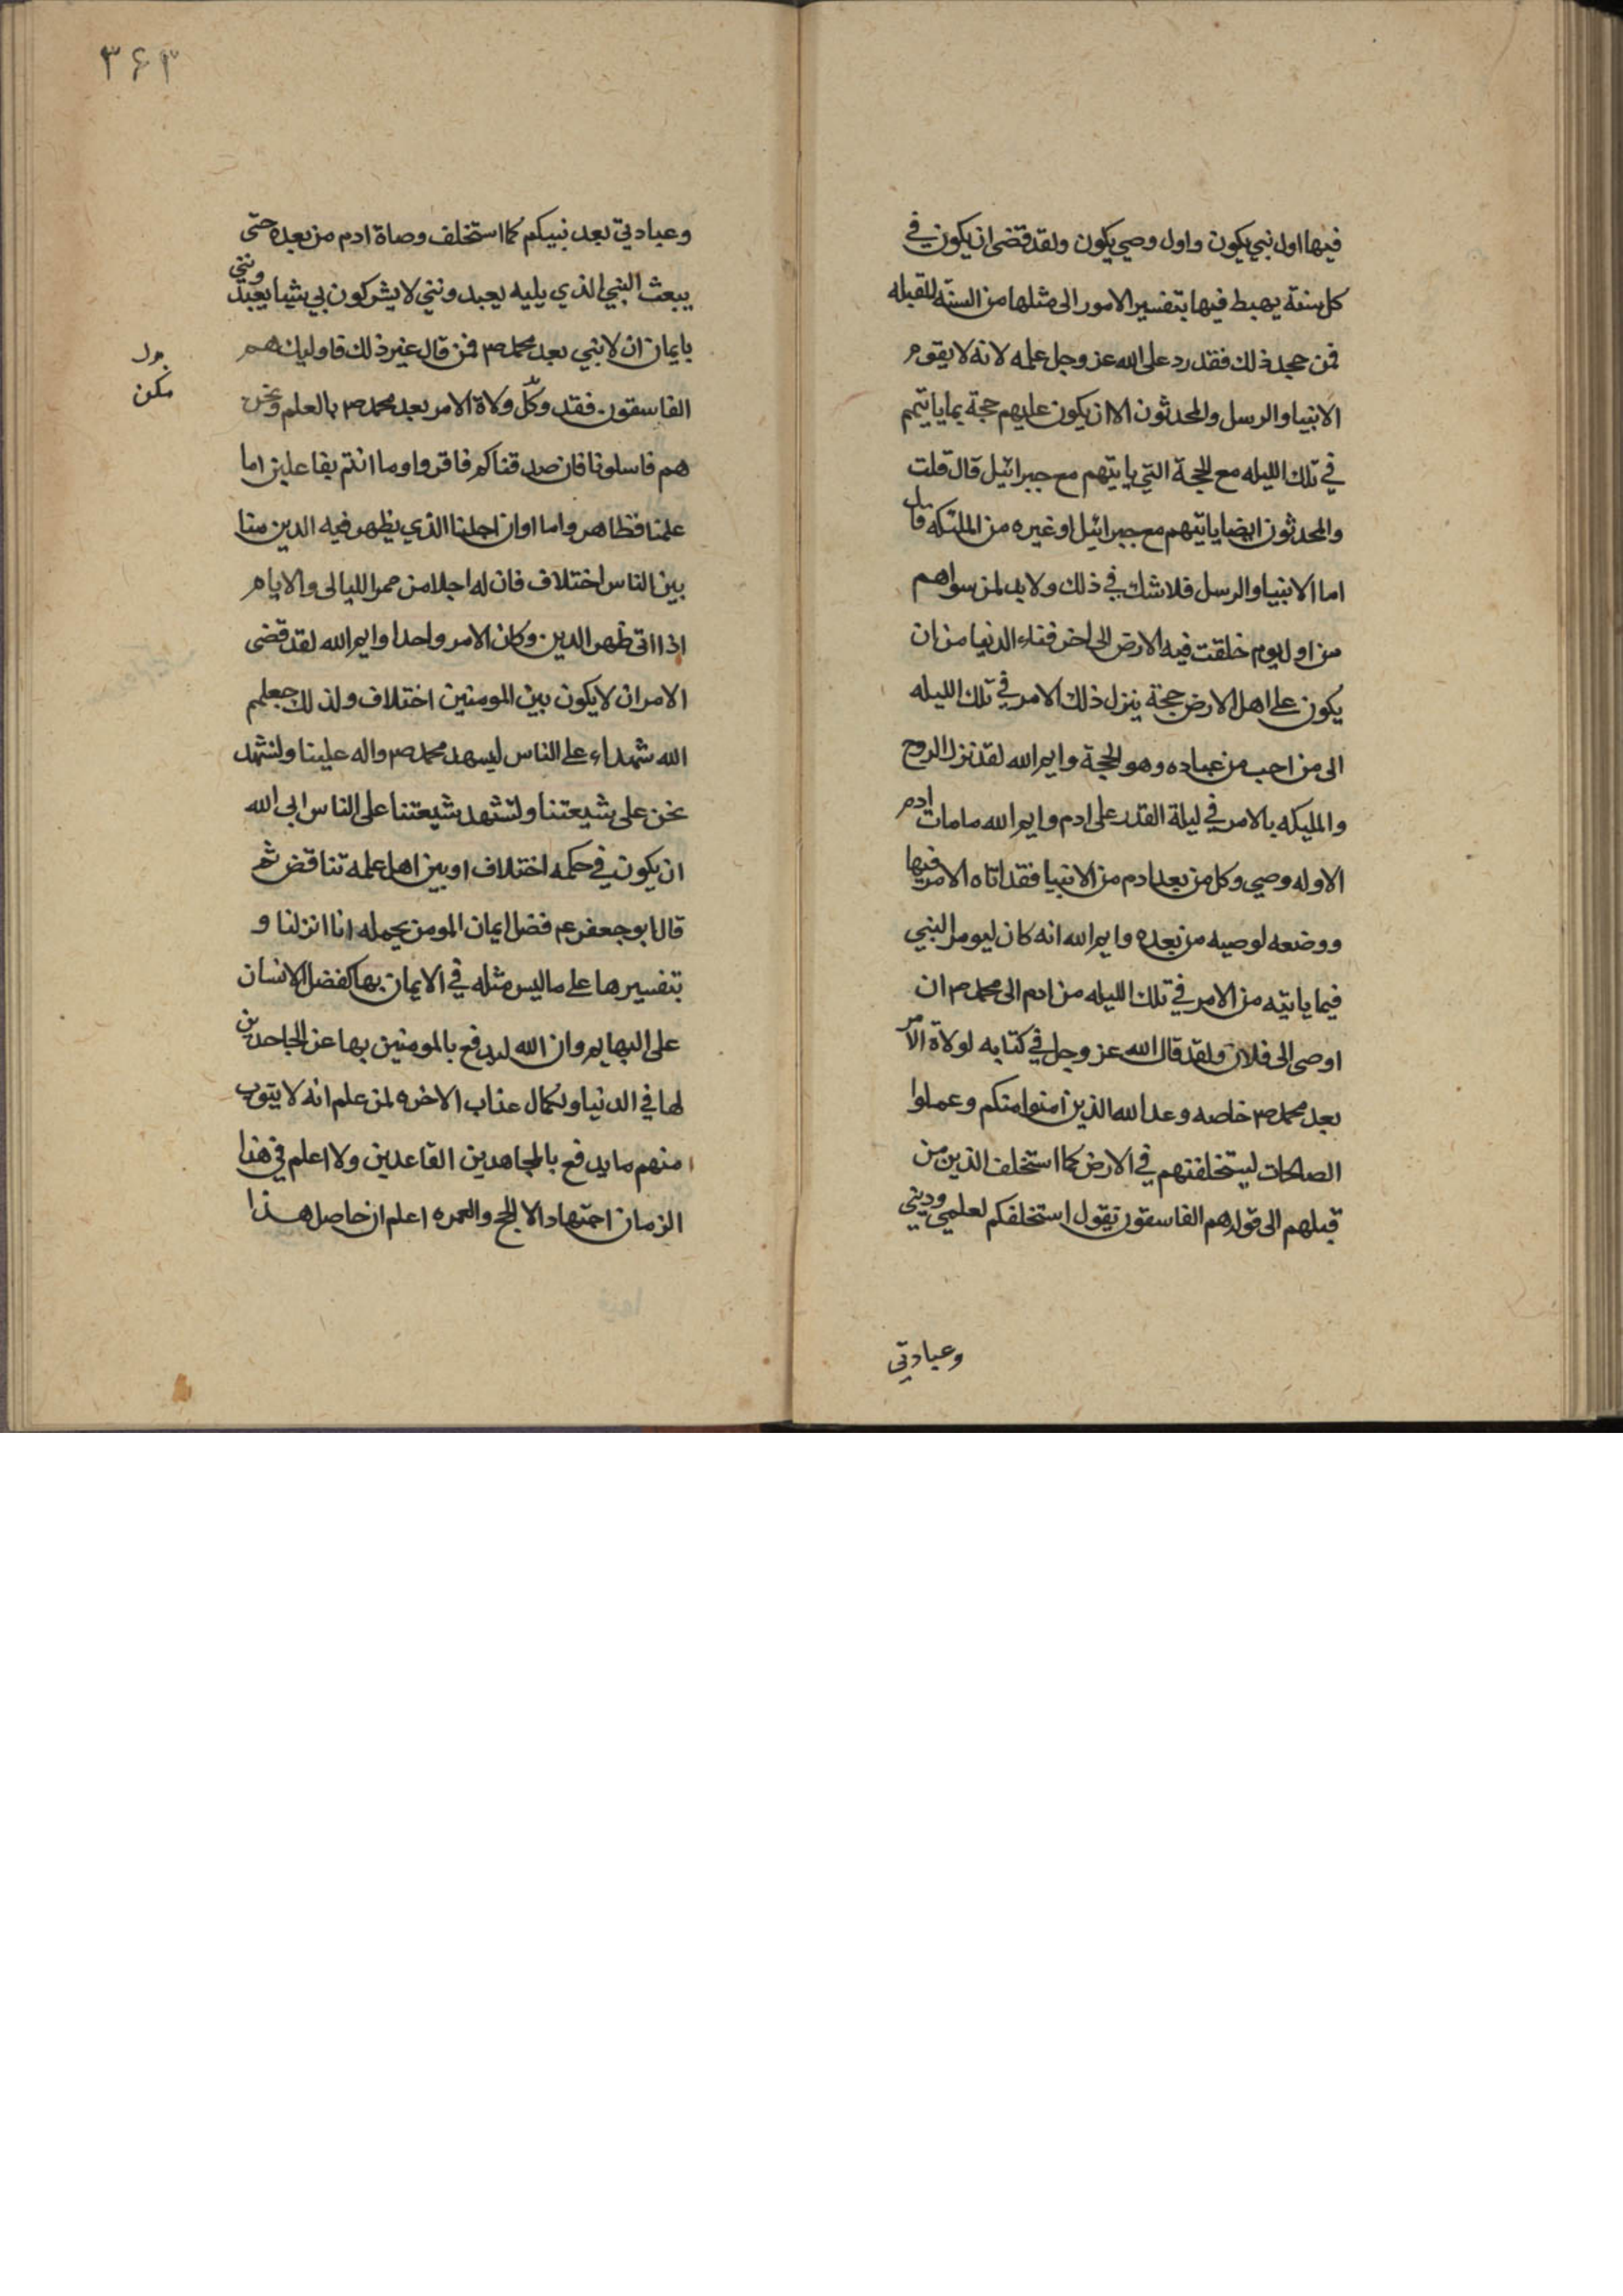 فيها اول نبي يكون واول وصي يكون ولقد قضى ان يكون في
كل سنة يهبط فيها بتفسير الامور الى مثلها من السنة المقبله
فمن جحد ذلك فقد رد على الله عز وجل علمه لانه لا يقوم
الانبيا والرسل والمحدثون الا ان يكون عليهم حجة بما ياتيهم
في تلك الليله مع الحجة التي ياتيهم مع جبرائيل قال قلت
والمحدثون ايضا ياتيهم مع جبرائيل او غيره من الملئكه قال
اما الانبيا والرسل فلا شك في ذلك ولا بد لمن سواهم
من اول يوم خلقت فيه الارض الى اخر فناء الدنيا من ان
يكون على اهل الارض حجة ينزل ذلك الامر في تلك الليله
الى من احب من عباده وهو الحجة وايم الله لقد نزل الروح
والمليكه بالامر في ليلة القدر على ادم وايم الله ما مات ادم
الا وله وصي وكل من بعد ادم من الانبيا فقد اتاه الامر فيها
ووضعه لوصيه من بعده وايم الله انه كان ليومر النبي
فيما ياتيه من الامر في تلك الليله من ادم الى محمد ص ان
اوصى الى فلان ولقد قال الله عز وجل في كتابه لولاة الامر
بعد محمد ص خاصه وعد الله الذين امنوا منكم وعملوا
الصالحات ليستخلفنهم في الارض كما استخلف الذين من
قبلهم الى قوله هم الفاسقون يقول استخلفكم لعلمي وديني
وعبادتي
٣۶٣
وعبادتي بعد نبيكم كما استخلف وصاة ادم من بعده حتى
يبعث النبي الذي يليه يعبدونني لا يشركون بي شيئا يعبدونني
بايمان ان لا نبي بعد محمد ص فمن قال غير ذلك فاوليك هم
الفاسقون فقد وكّل ولاة الامر بعد محمد ص بالعلم ونحن
هم فاسلونا فان صدقناكم فاقروا وما انتم بفاعلين اما
علمنا فظاهر واما اوان اجلنا الذي يظهر فيه الدين منا
بين الناس اختلاف فان له اجلا من ممر الليالى والايام
اذا اتى ظهر الدين وكان الامر واحدا وايم الله لقد قضى
الامر ان لا يكون بين المومنين اختلاف ولذلك جعلهم
الله شهداء على الناس ليسهد محمد ص واله علينا ولنشهد
نحن على شيعتنا ولتشهد شيعتنا على الناس ابى الله
ان يكون في حكمه اختلاف او بين اهل علمه تناقض ثم
قال ابو جعفر عم فضل ايمان المومن بحمله انا انزلنا و
بتفسيرها على ما ليس مثله في الايمان بها كفضل الانسان
على البهايم وان الله ليدفع بالمومنين بها عن الجاحدين
لها في الدنيا ولكمال عذاب الاخره لمن علم انه لا يتوب
منهم ما يدفع بالمجاهدين القاعدين ولا اعلم في هذا
الزمان اجتهادا الا الحج والعمره اعلم ان حاصل هذا